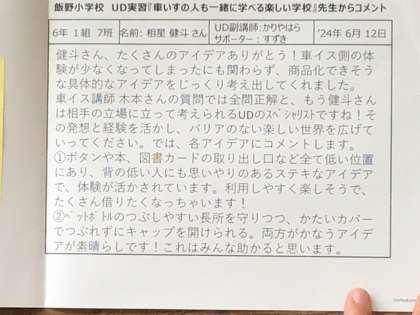 飯野小学校 UD実習『車いすの人も一緒に学べる楽しい学校』先生からコメント
6年 1組 7班 名前: 相星 健斗 さん UD副講師:かりやはら サポーター:すずき '24年 6月 12日
健斗さん、たくさんのアイデアありがとう!車イス側の体
験が少なくなってしまったにも関わらず、商品化できそう
な具体的なアイデアをじっくり考え出してくれました。
車イス講師 木本さんの質問では全問正解と、もう健斗さん
は相手の立場に立って考えられるUDのスペシャリストですね!そ
の発想と経験を活かし、バリアのない楽しい世界を広げて
いってください。では、各アイデアにコメントします。
①ボタンや本、図書カードの取り出し口など全て低い位置
にあり、背の低い人にも思いやりのあるステキなアイデア
で、体験が活かされています。利用しやすく楽しそうで、
たくさん借りたくなっちゃいます!
②ペットボトルのつぶしやすい長所を守りつつ、かたいカバー
でつぶれずにキャップを開けられる。両方がかなうアイデ
アが素晴らしです!これはみんな助かると思います。